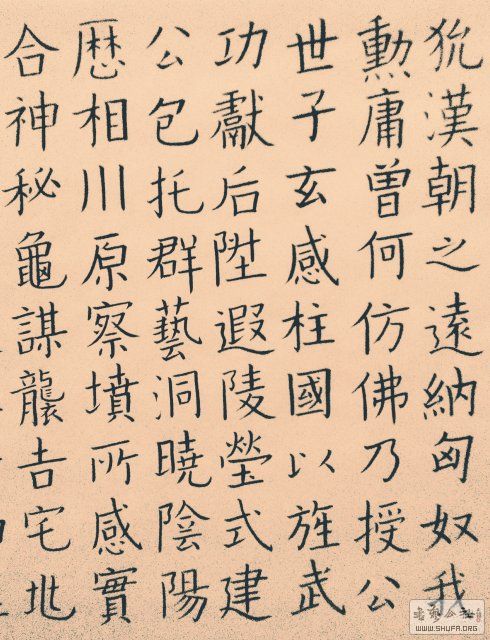 狁漢朝之遠納匈奴我
勲庸曽何仿佛乃授公
世子玄感柱國以旌武
功獻后陞遐陵塋式建
公包托群藝洞曉陰陽
厯相川原察墳所感實
合神秘龜謀龔𠮷宅兆
WWW.SHUFA.ORG